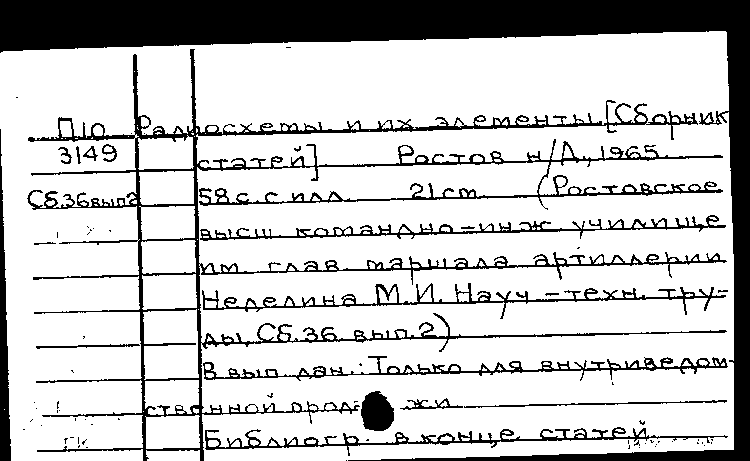 П10 Радиосхемы и их элементы. [Сборник
3149 статей] Ростов н/Д., 1965.
Сб.36вып2 58 с. с илл. 21 cm (Ростовское
высш. командно-инж училище
им. глав. маршала артиллерии
Неделина М.И. Науч-техн. тру-
ды, Сб.36. вып.2)
В вып. дан.: Только для внутриведом-
ственной прода жи
Библиогр. в конце статей.